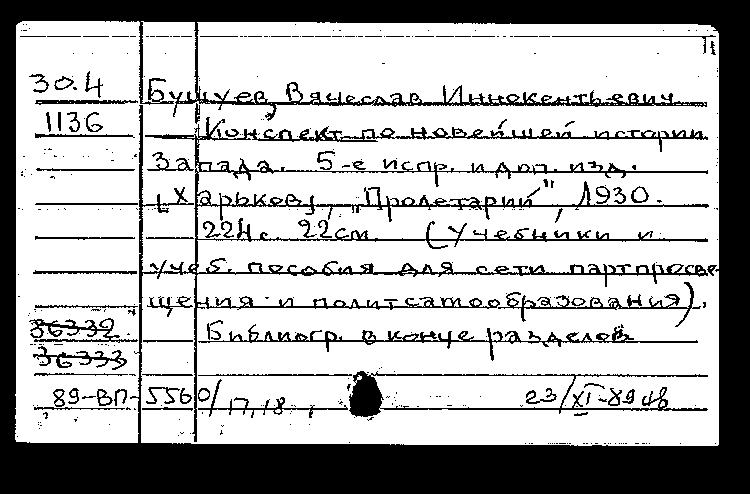 30.4 Бушуев, Вячеслав Иннокентьевич
1136 Конспект по новейшей истории
Запада. 5-е испр. и доп. изд.
[Харьков], "Пролетарий", 1930.
224 с. 22 см. (Учебники и
учеб. пособия для сети партпросве-
щения и политсамообразования).
36332 Библиогр. в конце разделов
36333
89-ВП-5560/17,18, 23/XI-89